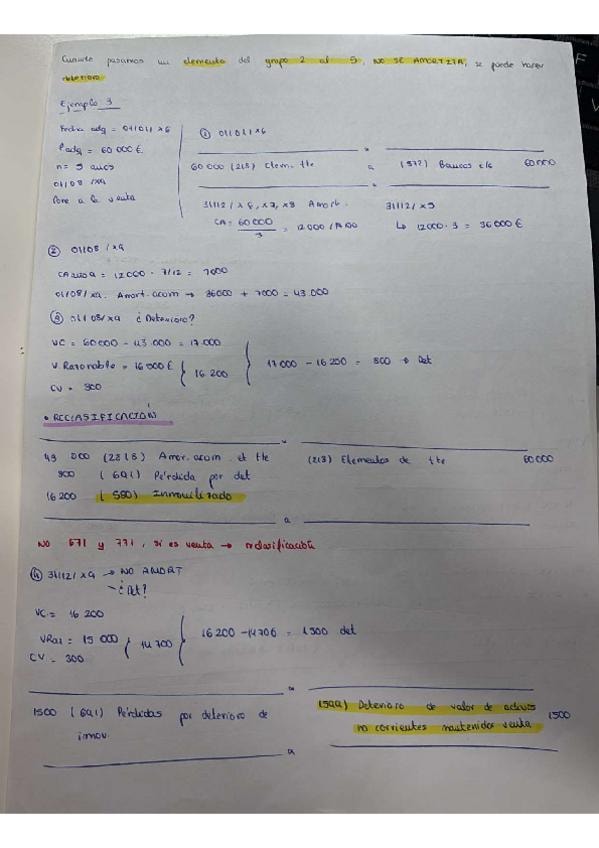 Cuando pasamos un elemento del grupo 2 al 5, NO SE AMORTIZA, se puede hacer
deterioro
Ejemplo 3
Fecha adq = 01/01/x6
Padq = 60 000 €
n = 5 años
01/08/x9
Pone a la venta
① 01/01/x6
60 000 (218) Elem. tte a (572) Bancos c/c 60 000
31/12/x6, x7, x8 Amort.
CA = 60 000 / 5 = 12 000 / AÑO
31/12/x9
↳ 12000 · 3 = 36000 €
② 01/08/x9
CA 2009 = 12000 · 7/12 = 7000
01/08/x9. Amort. acum → 36000 + 7000 = 43.000
③ 01/08/x9 ¿Deterioro?
VC = 60000 - 43.000 = 17.000
V. Razonable = 16 500 €
CV = 300
16 200
17 000 - 16 200 = 800 → Det
• RECLASIFICACIÓN
43 000 (2818) Amor. acum. et tte (218) Elementos de tte 60 000
800 (691) Pérdida por det
16 200 (580) Inmovilizado
a
NO 671 y 771, si es venta → reclasificación
④ 31/12/x9 → NO AMORT
→ ¿Det?
VC = 16 200
VRaz = 15 000
CV = 300
14 700
16 200 - 14700 = 1500 det
1500 (691) Pérdidas por deterioro de
inmov.
(599) Deterioro de valor de activos
no corrientes mantenidos venta 1500
a